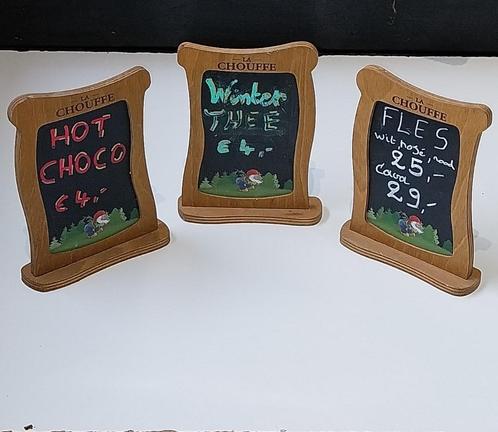 LA
CHOUFFE
HOT
CHOCO
€ 4,-
LA
CHOUFFE
Winter
THEE
€ 4,-
LA
CHOUFFE
FLES
wit, rosé, rood
25,-
Cava
29,-